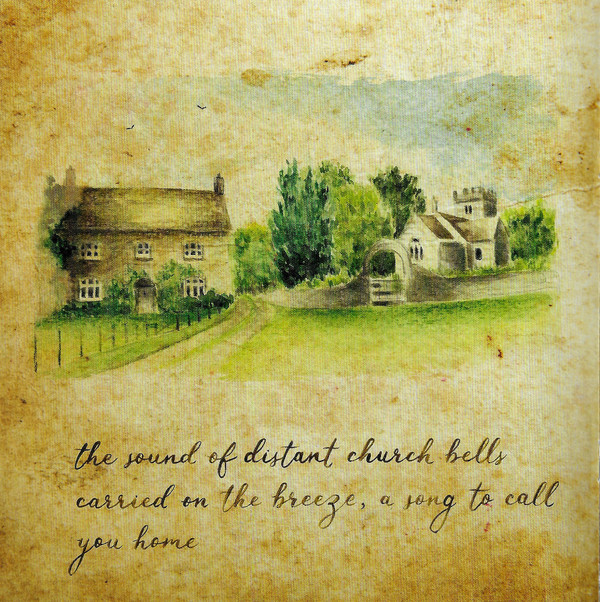 the sound of distant church bells
carried on the breeze, a song to call
you home